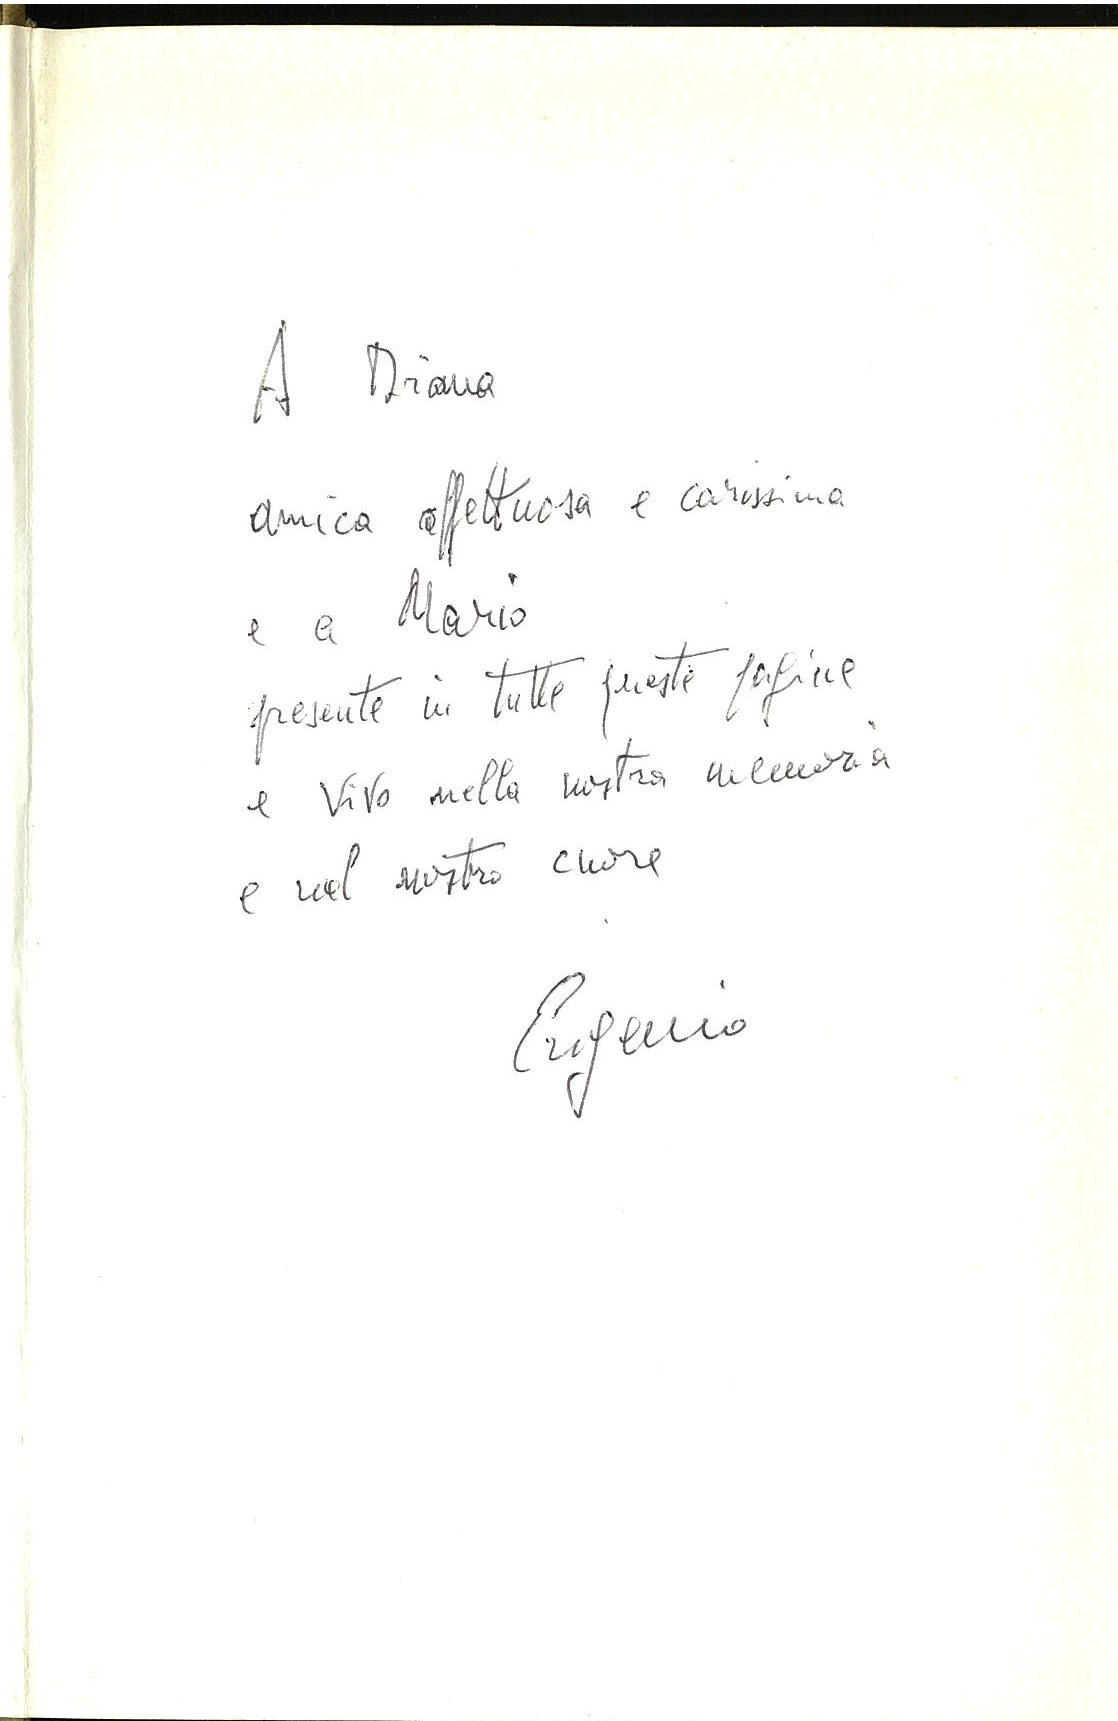 A Diana
amica affettuosa e carissima
e a Mario
presente in tutte queste pagine
e vivo nella nostra memoria
e nel nostro cuore
Eugenio